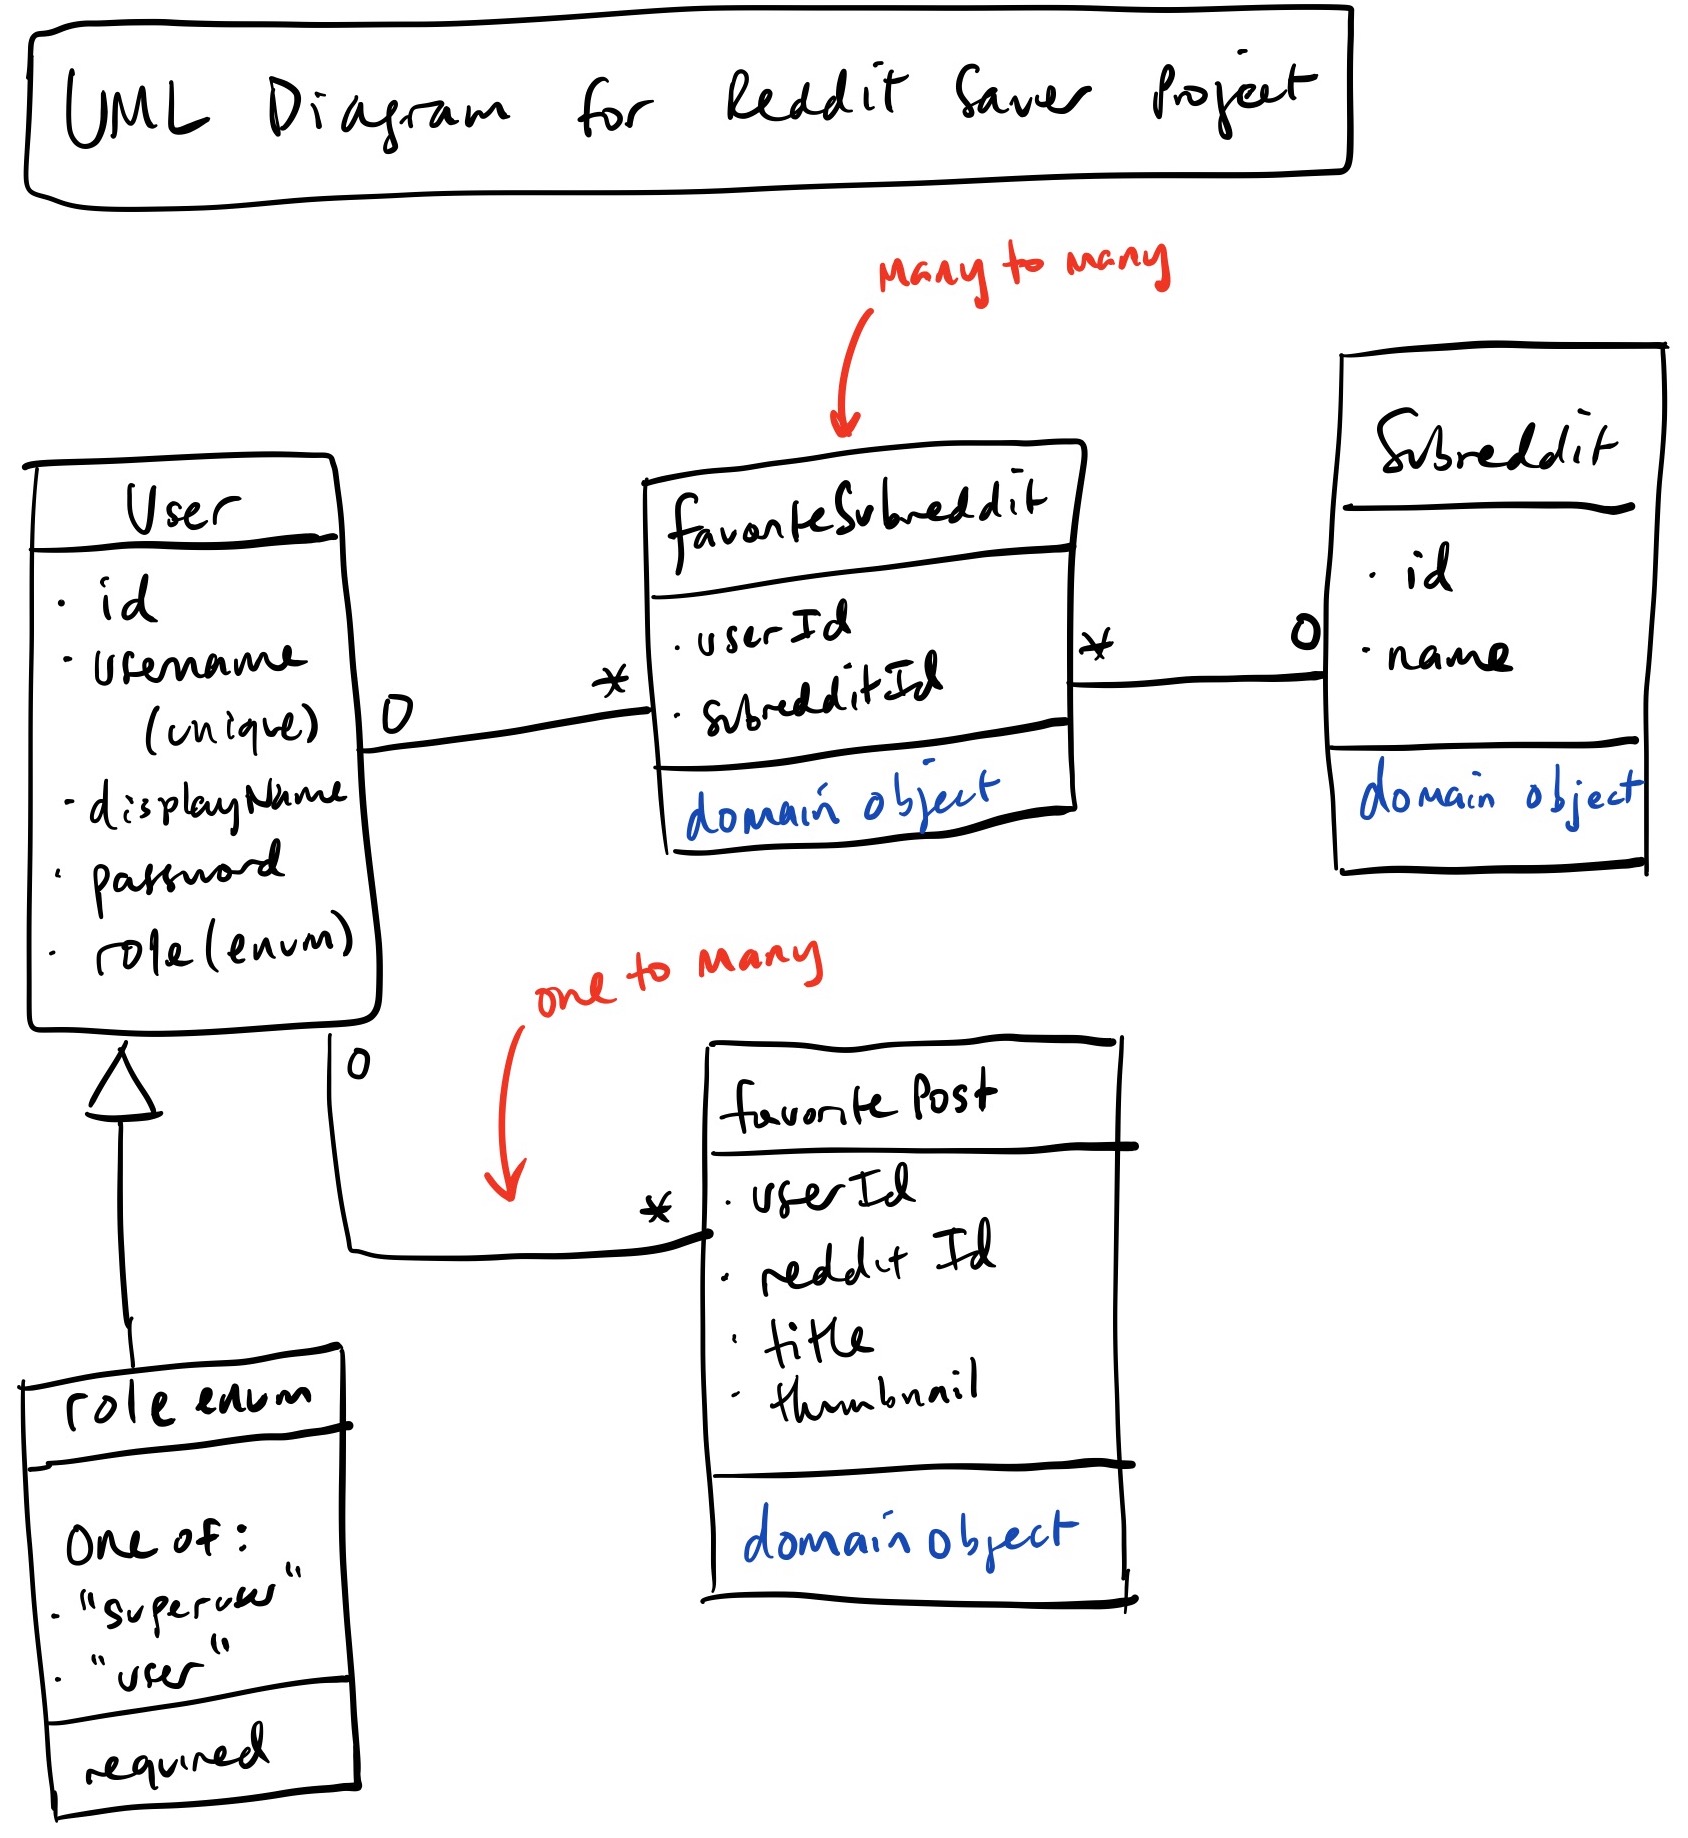 UML Diagram for Reddit Saver Project
many to many
User
· id
· username
(unique)
· displayName
· password
· role (enum)
0
*
favoriteSubreddit
· userId
· subredditId
domain object
*
0
Subreddit
· id
· name
domain object
one to many
0
*
favorite Post
· userId
· reddit Id
· title
· thumbnail
domain object
role enum
one of:
· "superuser"
· "user"
required